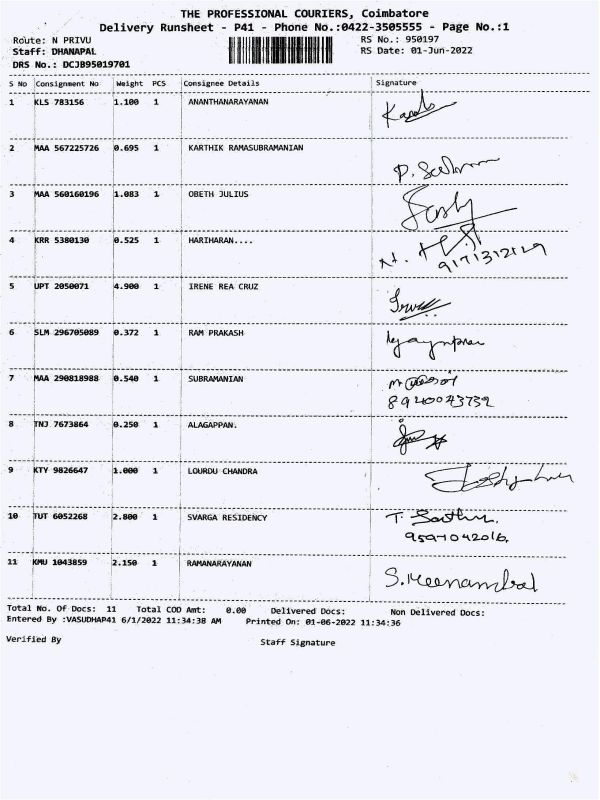 THE PROFESSIONAL COURIERS, Coimbatore
Delivery Runsheet - P41 - Phone No.:0422-3505555 - Page No.:1
Route: N PRIVU RS No.: 950197
Staff: DHANAPAL RS Date: 01-Jun-2022
DRS No.: DCJB95019701
S No Consignment No Weight PCS Consignee Details Signature
1 KLS 783156 1.100 1 ANANTHANARAYANAN
2 MAA 567225726 0.695 1 KARTHIK RAMASUBRAMANIAN
3 MAA 560160196 1.083 1 OBETH JULIUS
4 KRR 5380130 0.525 1 HARIHARAN....
9171312129
5 UPT 2050071 4.900 1 IRENE REA CRUZ
6 SLM 296705089 0.372 1 RAM PRAKASH
7 MAA 290818988 0.540 1 SUBRAMANIAN
8940043732
8 TNJ 7673864 0.250 1 ALAGAPPAN.
9 KTY 9826647 1.000 1 LOURDU CHANDRA
10 TUT 6052268 2.800 1 SVARGA RESIDENCY
9597042016.
11 KMU 1043859 2.150 1 RAMANARAYANAN S.Meenambal
Total No. Of Docs: 11 Total COD Amt: 0.00 Delivered Docs: Non Delivered Docs:
Entered By :VASUDHAP41 6/1/2022 11:34:38 AM Printed On: 01-06-2022 11:34:36
Verified By Staff Signature